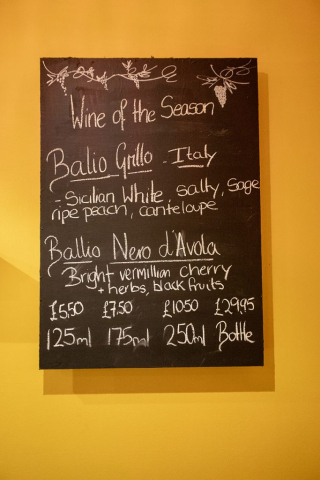 Wine of the Season
Balio Grillo - Italy
- Sicilian White, salty, sage
ripe peach, canteloupe
Ballio Nero d'Avola
Bright vermillian cherry
+ herbs, black fruits
£5.50 £7.50 £10.50 £29.95
125ml 175ml 250ml Bottle